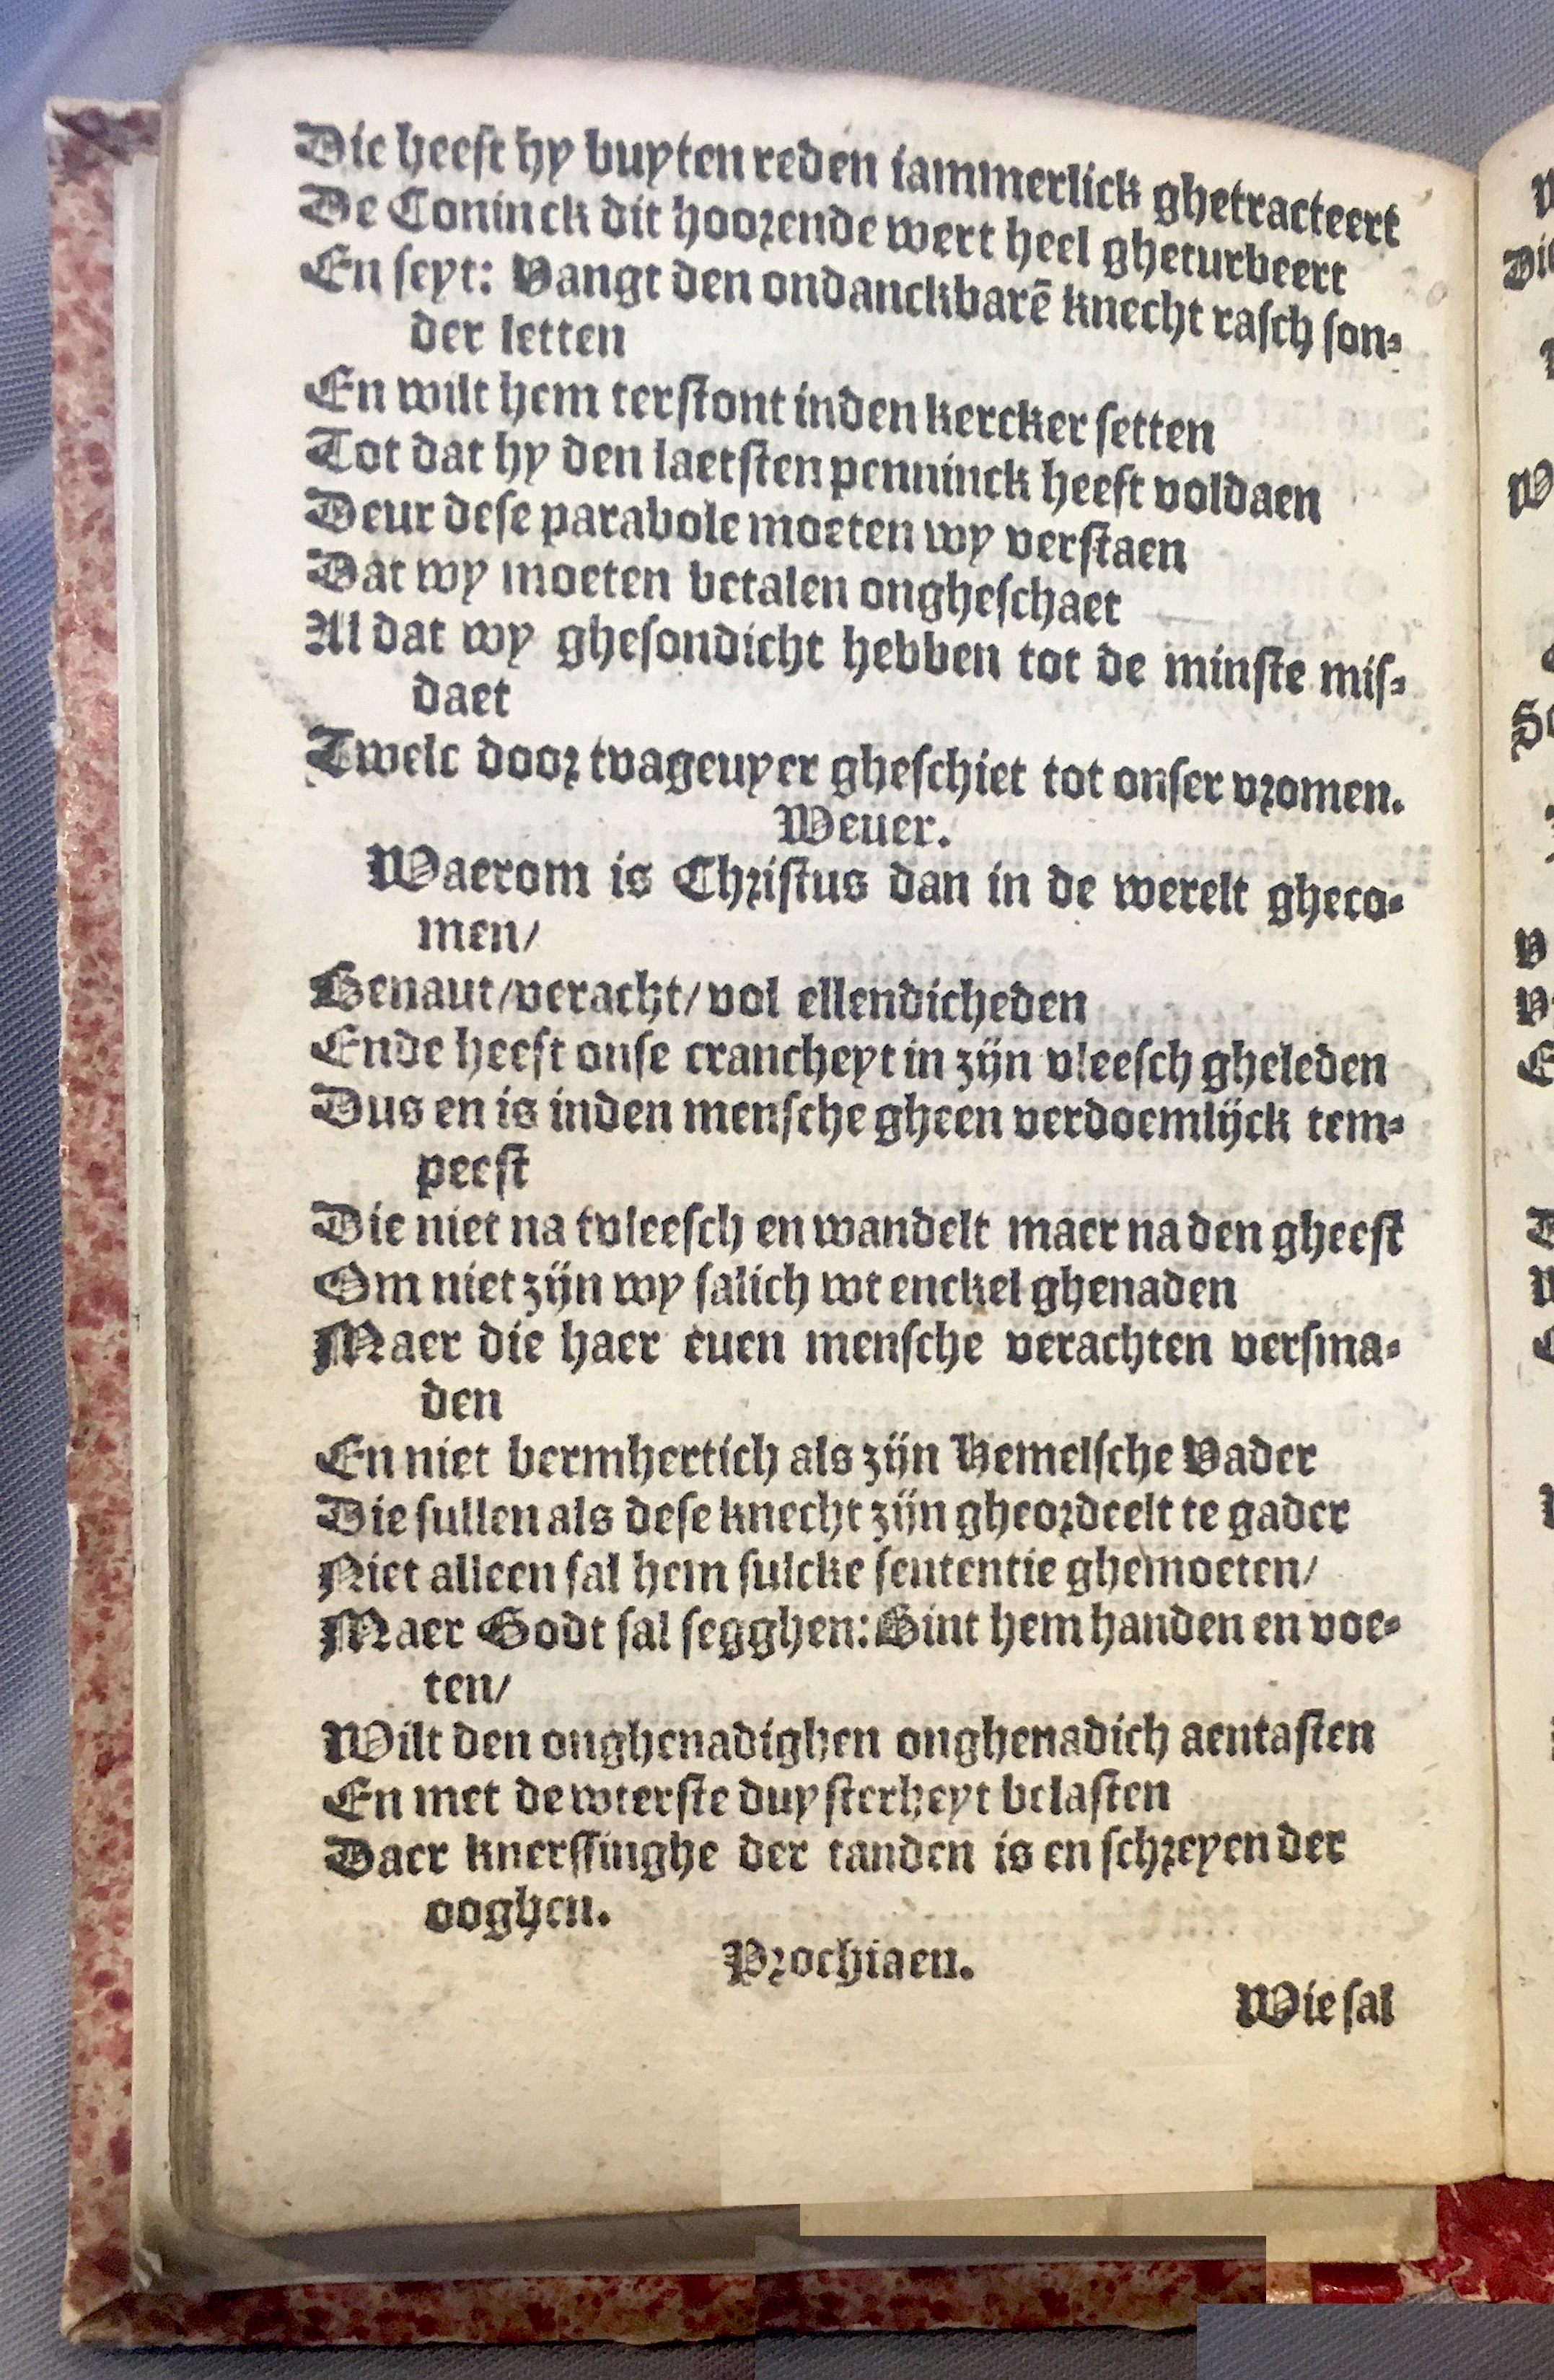 Die heeft hy buyten reden iammerlick ghetracteert
De Coninck dit hoorende wert heel gheturbeert
En seyt: Vangt den ondanckbarē knecht rasch son-
der letten
En wilt hem terstont inden kercker setten
Tot dat hy den laetsten penninck heeft voldaen
Deur dese parabole moeten wy verstaen
Dat wy moeten betalen ongheschaet
Al dat wy ghesondicht hebben tot de minste mis-
daet
Twelc door tvageuyer gheschiet tot onser vromen.
Weuer.
Waerom is Christus dan in de werelt gheco-
men/
Benaut/veracht/vol ellendicheden
Ende heeft onse crancheyt in zijn vleesch gheleden
Dus en is inden mensche gheen verdoemlijck tem-
peest
Die niet na tvleesch en wandelt maer na den gheest
Om niet zijn wy salich wt enckel ghenaden
Maer die haer euen mensche verachten versma-
den
En niet bermhertich als zijn Hemelsche Vader
Die sullen als dese knecht zijn gheordeelt te gader
Niet alleen sal hem sulcke sententie ghemoeten/
Maer Godt sal segghen: Bint hem handen en voe-
ten/
Wilt den onghenadighen onghenadich aentasten
En met de wterste duysterheyt belasten
Daer knerssinghe der tanden is en schreyen der
ooghen.
Prochiaen.
Wie sal